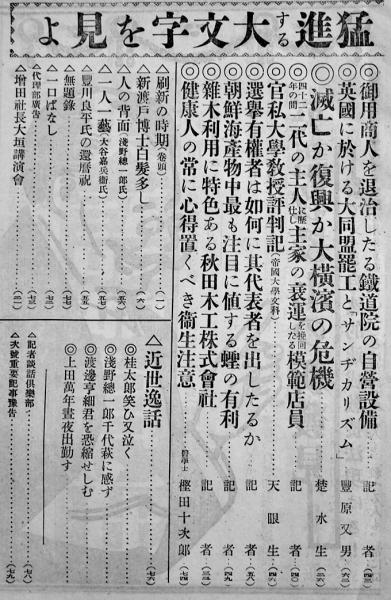 猛進する大文字を見よ
◎御用商人を退治したる鐵道院の自營設備……記者…(四三)
◎英國に於ける大同盟罷工と「サンヂカリズム」……豐原又男…(六三)
◎滅亡か復興か大橫濱の危機……楚水生…(三六)
◎四十二年の間二代の主人に歷仕し主家の衰運を挽回したる模範店員……記者…(四〇)
◎官私大學敎授評判記(帝國大學文科)……天眼生…(四六)
◎選擧有權者は如何に其代表者を出したるか……記者…(五八)
◎朝鮮海產物中最も注目に値する蟶の有利……記者…(四九)
◎雜木利用に特色ある秋田木工株式會社……記者…(三三)
◎健康人の常に心得置くべき衞生注意……醫學士 樫田十次郞…(七四)
△刷新の時期(卷頭)……(一)
△新渡戶博士白髮多し……(六)
△人の背面(淺野總一郞氏)……
△一人一藝(大谷嘉兵衞氏)……
△豐川良平氏の還曆祝……(五)
△無題錄……
△一口ばなし……
△代理部廣吿……(七三)
△增田社長大垣講演會……
△近世逸話……(七六)
◎桂太郞笑ひ又泣く
◎淺野總一郞千代萩に感ず
◎渡邊亨細君を恐縮せしむ
◎上田萬年晝夜出勤す
△記者談話俱樂部……(七八)
△次號重要記事豫吿……(七九)